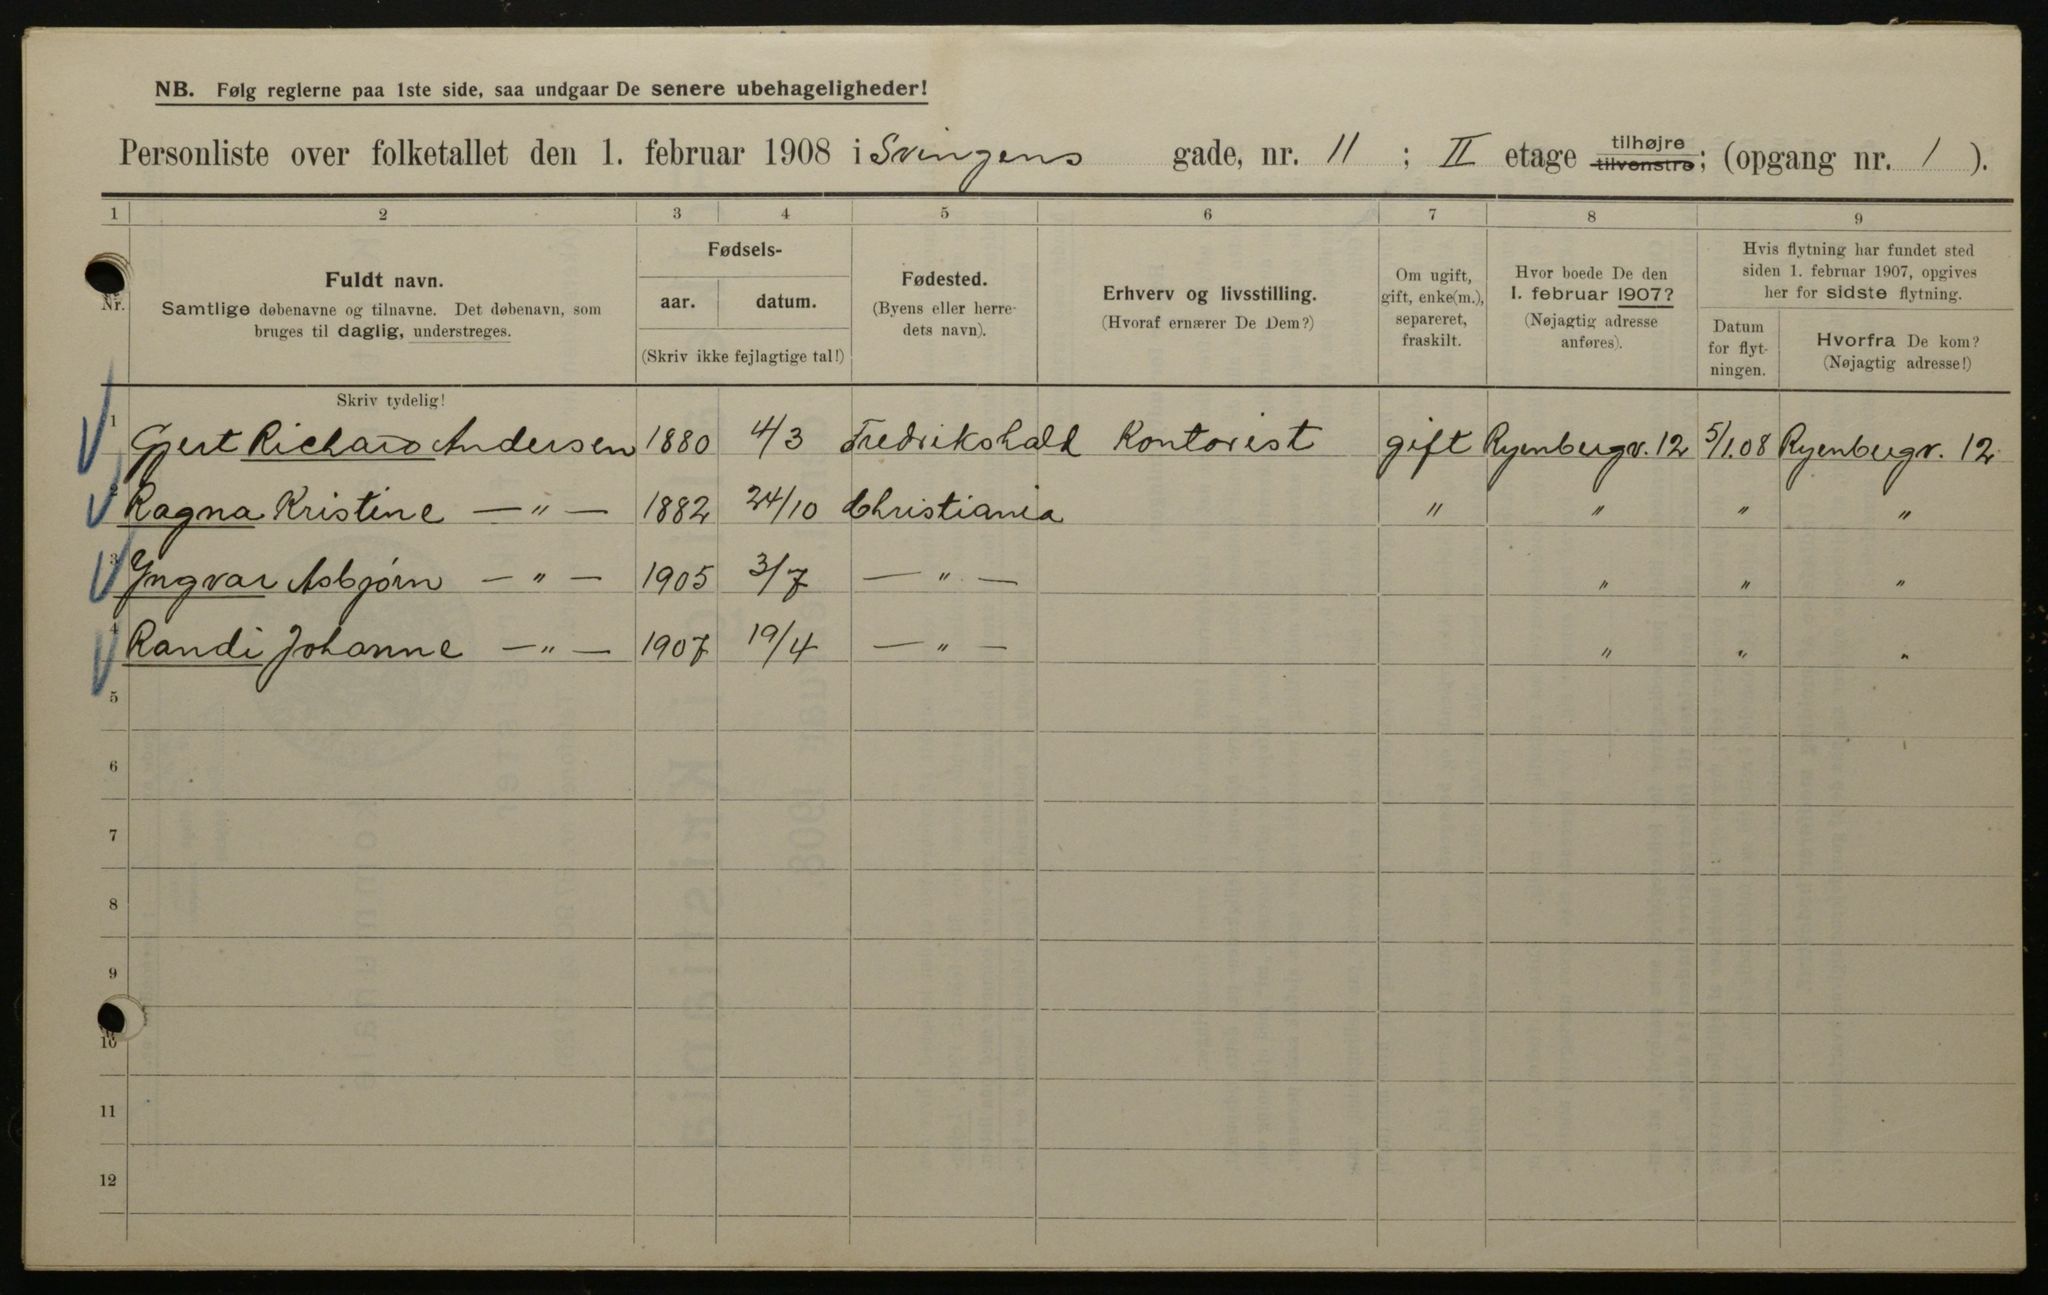 NB. Følg reglerne paa 1ste side, saa undgaar De senere ubehageligheder!
Personliste over folketallet den 1. februar 1908 i Svingens gade, nr. 11; II etage tilhøjre tilvenstre; (opgang nr. 1).
1 2 3 4 5 6 7 8 9
Nr.
Fuldt navn.
Samtlige døbenavne og tilnavne. Det døbenavn, som
bruges til daglig, understreges.
Fødsels-
aar. datum.
(Skriv ikke fejlagtige tal!)
Fødested.
(Byens eller herre-
dets navn).
Erhverv og livsstilling.
(Hvoraf ernærer De Dem?)
Om ugift,
gift, enke(m.),
separeret,
fraskilt.
Hvor boede De den
1. februar 1907?
(Nøjagtig adresse
anføres).
Hvis flytning har fundet sted
siden 1. februar 1907, opgives
her for sidste flytning.
Datum
for flyt-
ningen.
Hvorfra De kom?
(Nøjagtig adresse!)
Skriv tydelig!
1 Gjert Richard Andersen 1880 4/3 Fredrikshald Kontorist gift Ryenbergv. 12 5/1.08 Ryenbergv. 12
Ragna Kristine — " — 1882 24/10 Christiania " " " "
3 Yngvar Asbjørn — " — 1905 3/7 — " — " " "
4 Randi Johanne — " — 1907 19/4 — " — " " "
5
6
7
8
9
10
11
12